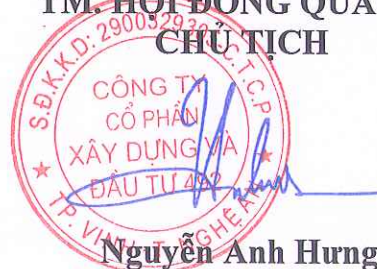 TM. HỘI ĐỒNG QUẢ
CHỦ TỊCH
S.Đ.K.K.D: 290032930
C.T.C.P
CÔNG TY
CỔ PHẦN
XÂY DỰNG VÀ
ĐẦU TƯ 492
TP. VINH - T. NGHỆ AN
Nguyễn Anh Hưng